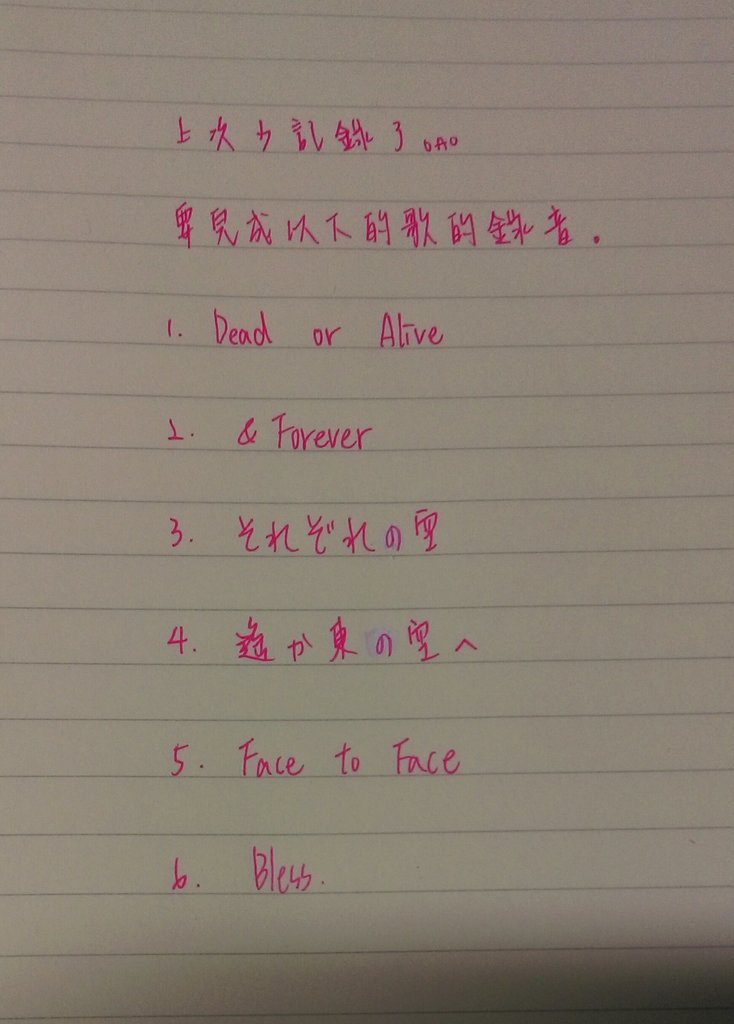 上次少記錄了。oAo
要完成以下的歌的錄音。
1. Dead or Alive
2. & Forever
3. それぞれの空
4. 遙か東の空へ
5. Face to Face
6. Bless.